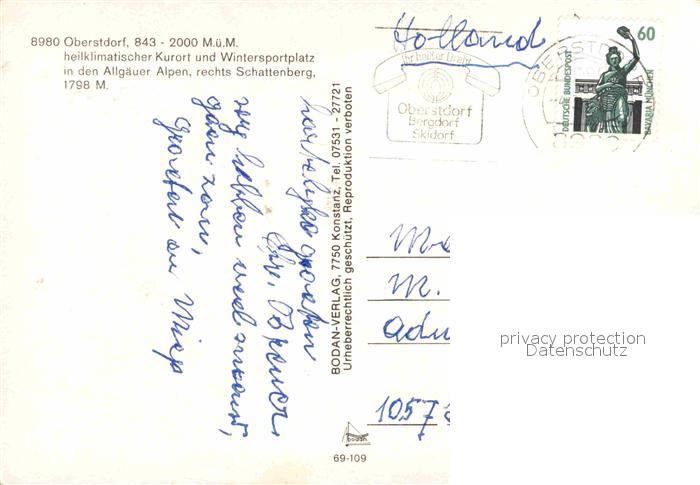 8980 Oberstdorf, 843 - 2000 M.ü.M.
heilklimatischer Kurort und Wintersportplatz
in den Allgäuer Alpen, rechts Schattenberg,
1798 M.
Holland
Ihr heißer Draht
Oberstdorf
Bergdorf
Skidorf
OBERSTDO
60
DEUTSCHE BUNDESPOST
BAVARIA MÜNCHEN
hartelijke groeten
wij hebben veel
groeten en
BODAN-VERLAG, 7750 Konstanz, Tel. 07531 - 27721
Urheberrechtlich geschützt, Reproduktion verboten
M.
1057
bodan
69-109
privacy protection
Datenschutz